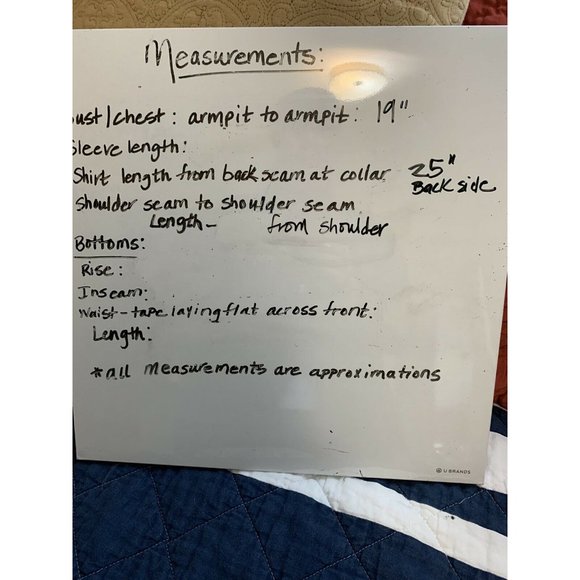 Measurements:
ust/chest: armpit to armpit: 19"
Sleeve length:
Shirt length from back seam at collar 25"
Back side
Shoulder seam to shoulder seam
Length- from shoulder
Bottoms:
Rise:
Inseam:
Waist-tape laying flat across front:
Length:
*all measurements are approximations
U BRANDS